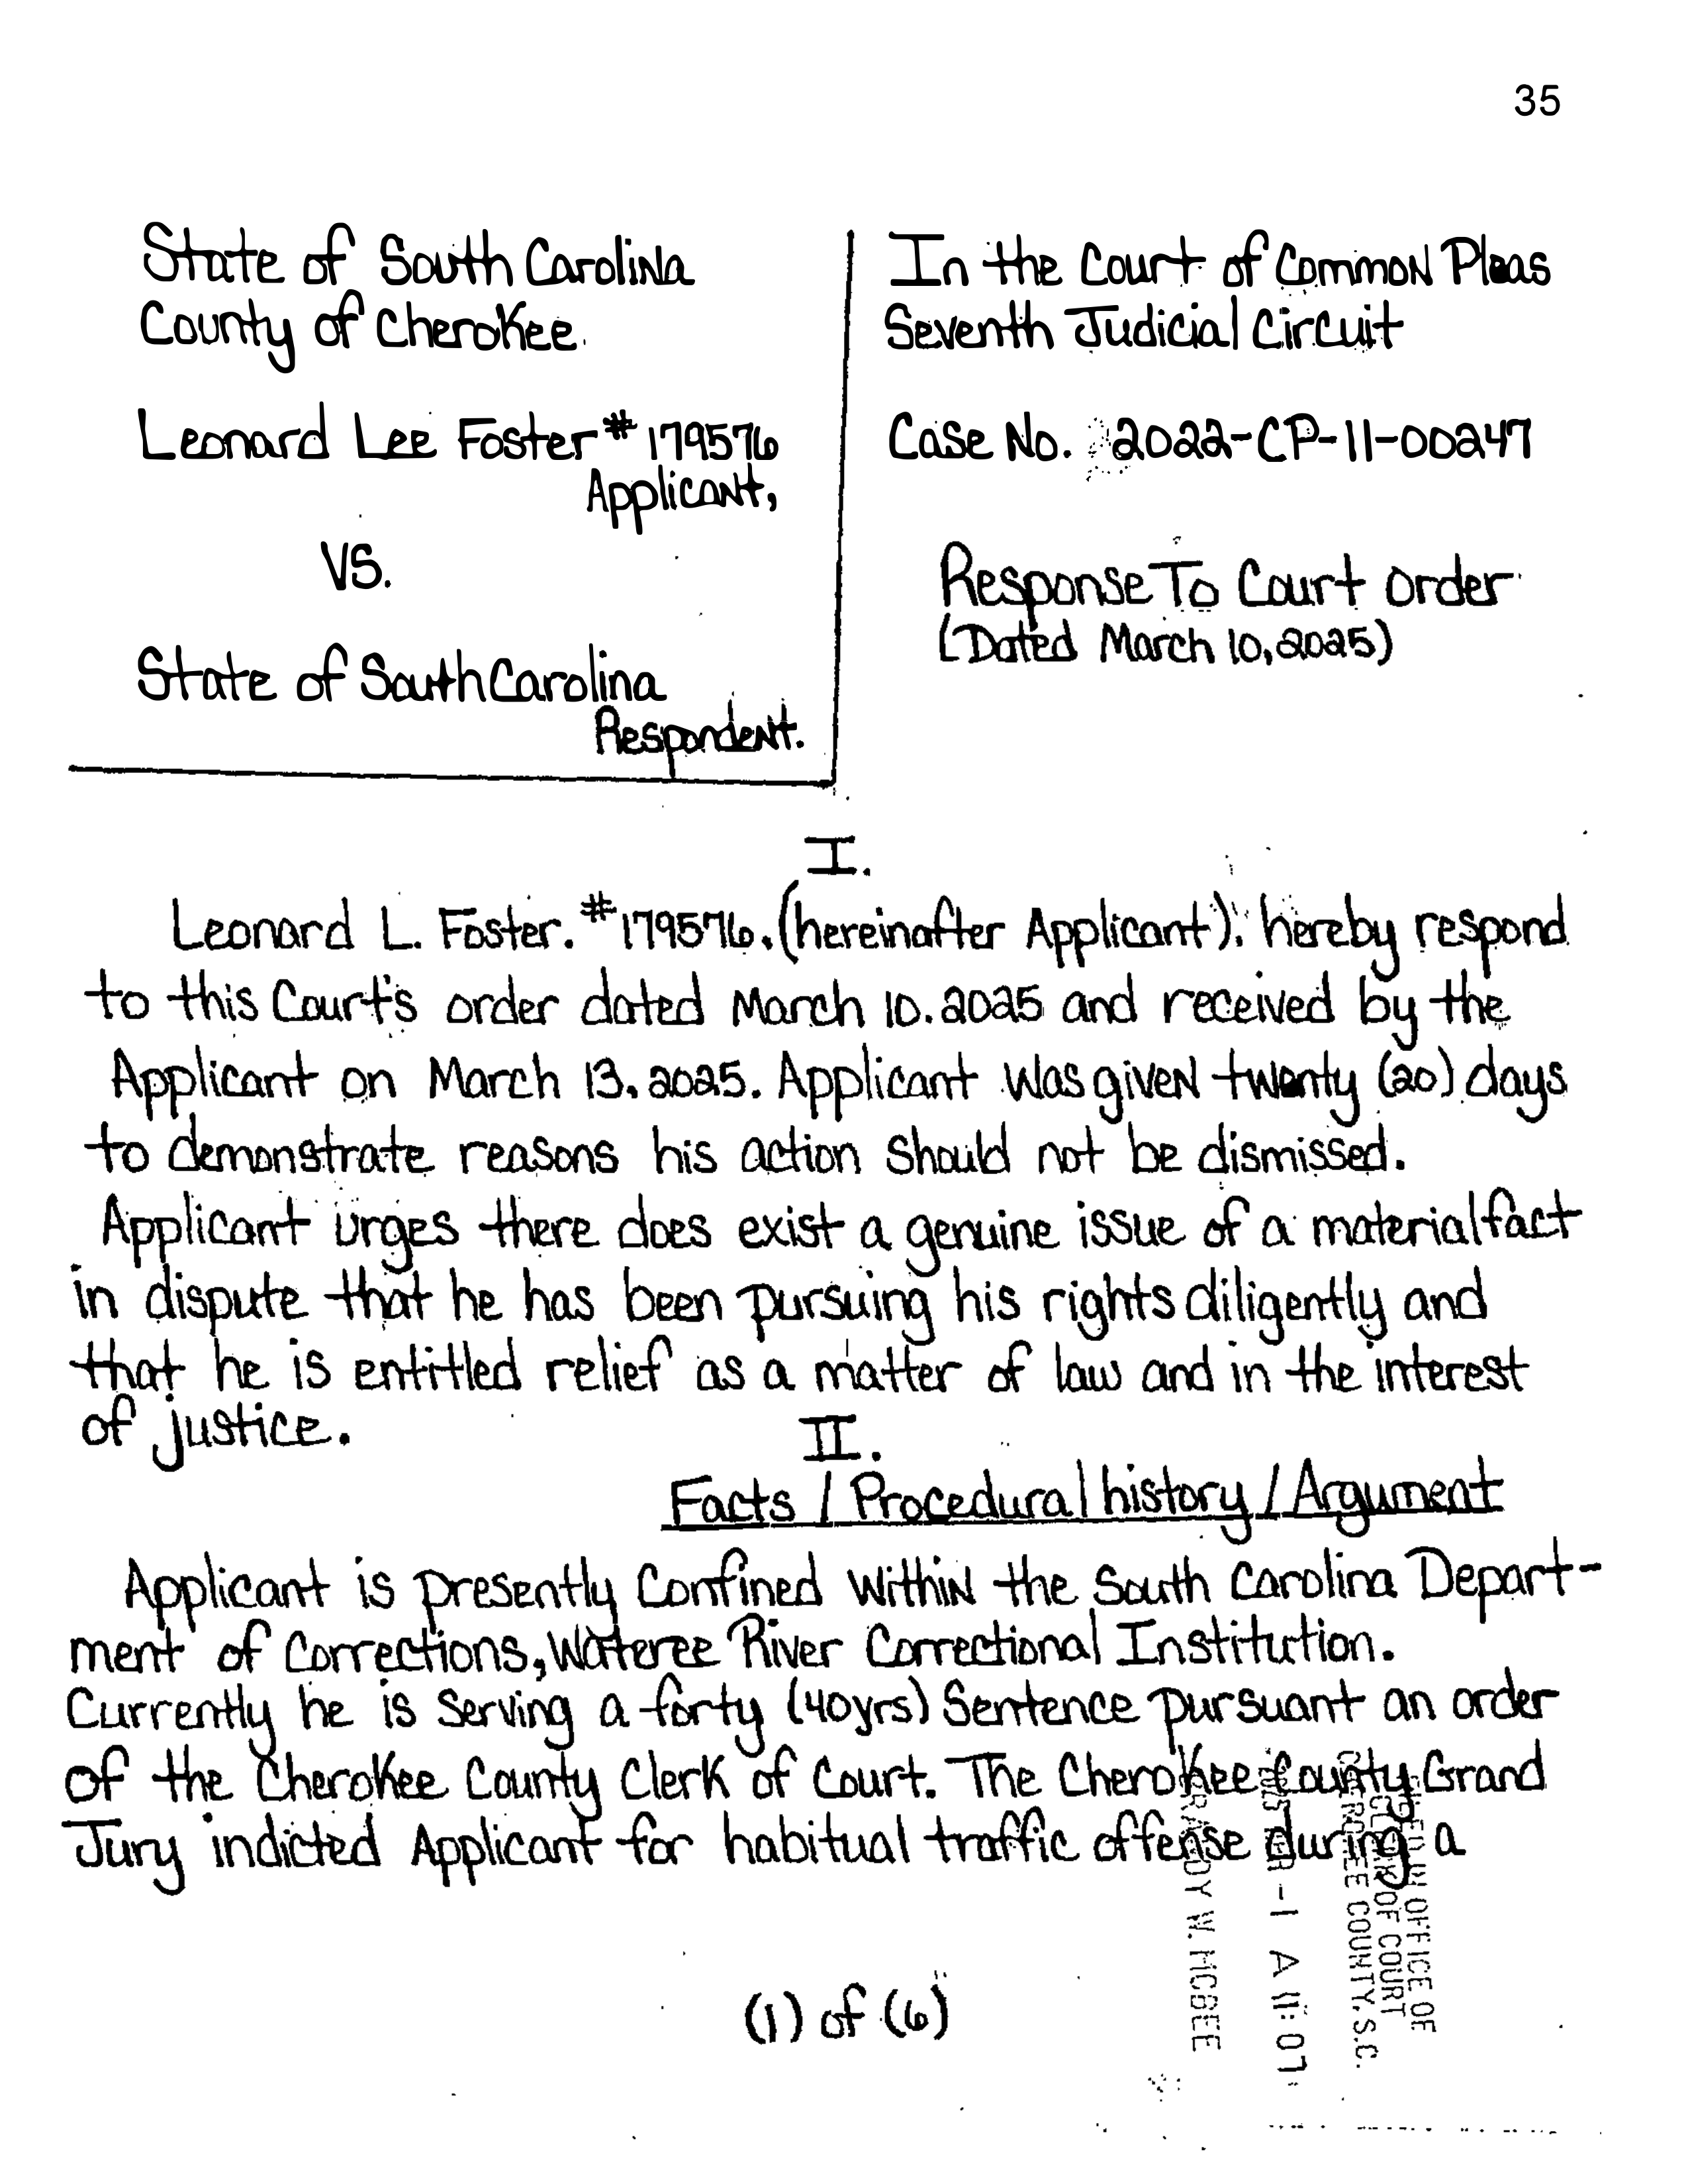 35
State of South Carolina
County of Cherokee
Leonard Lee Foster #179576
Applicant,
VS.
State of South Carolina
Respondent.
In the Court of Common Pleas
Seventh Judicial Circuit
Case No. 2022-CP-11-00247
Response To Court Order
(Dated March 10, 2025)
I.
Leonard L. Foster. #179576. (hereinafter Applicant). hereby respond
to this Court's order dated March 10. 2025 and received by the
Applicant on March 13. 2025. Applicant was given twenty (20) days
to demonstrate reasons his action should not be dismissed.
Applicant urges there does exist a genuine issue of a material fact
in dispute that he has been pursuing his rights diligently and
that he is entitled relief as a matter of law and in the interest
of justice.
II.
Facts / Procedural history / Argument
Applicant is presently Confined Within the South Carolina Depart-
ment of Corrections, Wateree River Correctional Institution.
Currently he is Serving a forty (40yrs) Sentence pursuant an order
of the Cherokee County Clerk of Court. The Cherokee County Grand
Jury indicted Applicant for habitual traffic offense during a
(1) of (6)
FILED IN OFFICE OF
CLERK OF COURT
CHEROKEE COUNTY, S.C.
2025 -1 A 11: 07
BRANDY W. MCBEE